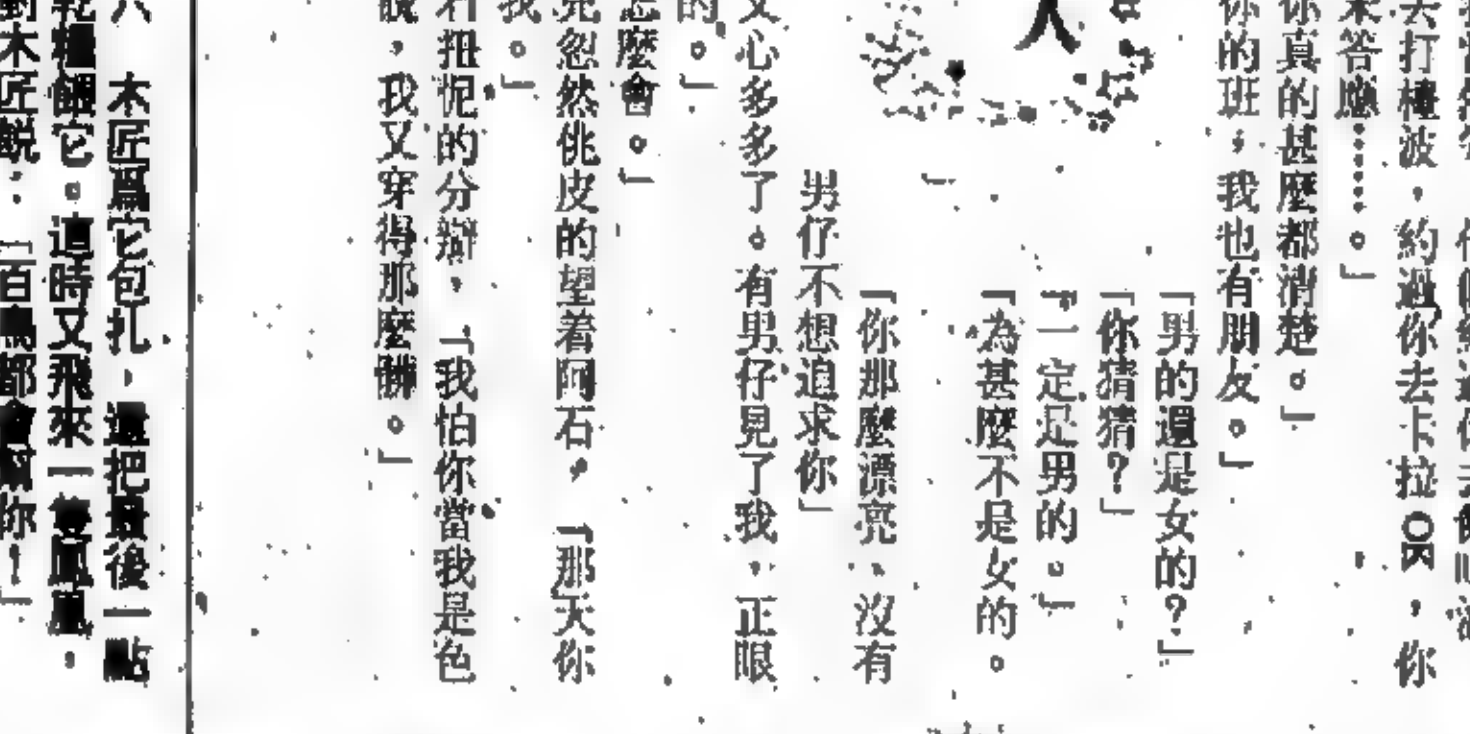 去打種波，約過你去卡拉OK，你
來答應……。」
你真的甚麼都清楚。」
你的班，我也有朋友。」
「男的還是女的？」
「你猜猜？」
「一定是男的。」
「為甚麼不是女的。
」
人
「你那麼漂亮、沒有
男仔不想追求你」
心多多了。有男仔見了我，正眼
的。」
怎麼會。」
忽然佻皮的望着阿石，「那天你
我。」
扭怩的分辯，「我怕你當我是色
說，我又穿得那麼髒。」
木匠爲它包扎，還把最後一點
乾糧餵它。這時又飛來一隻鳳凰，
對木匠説：「百鳥都會幫你！」